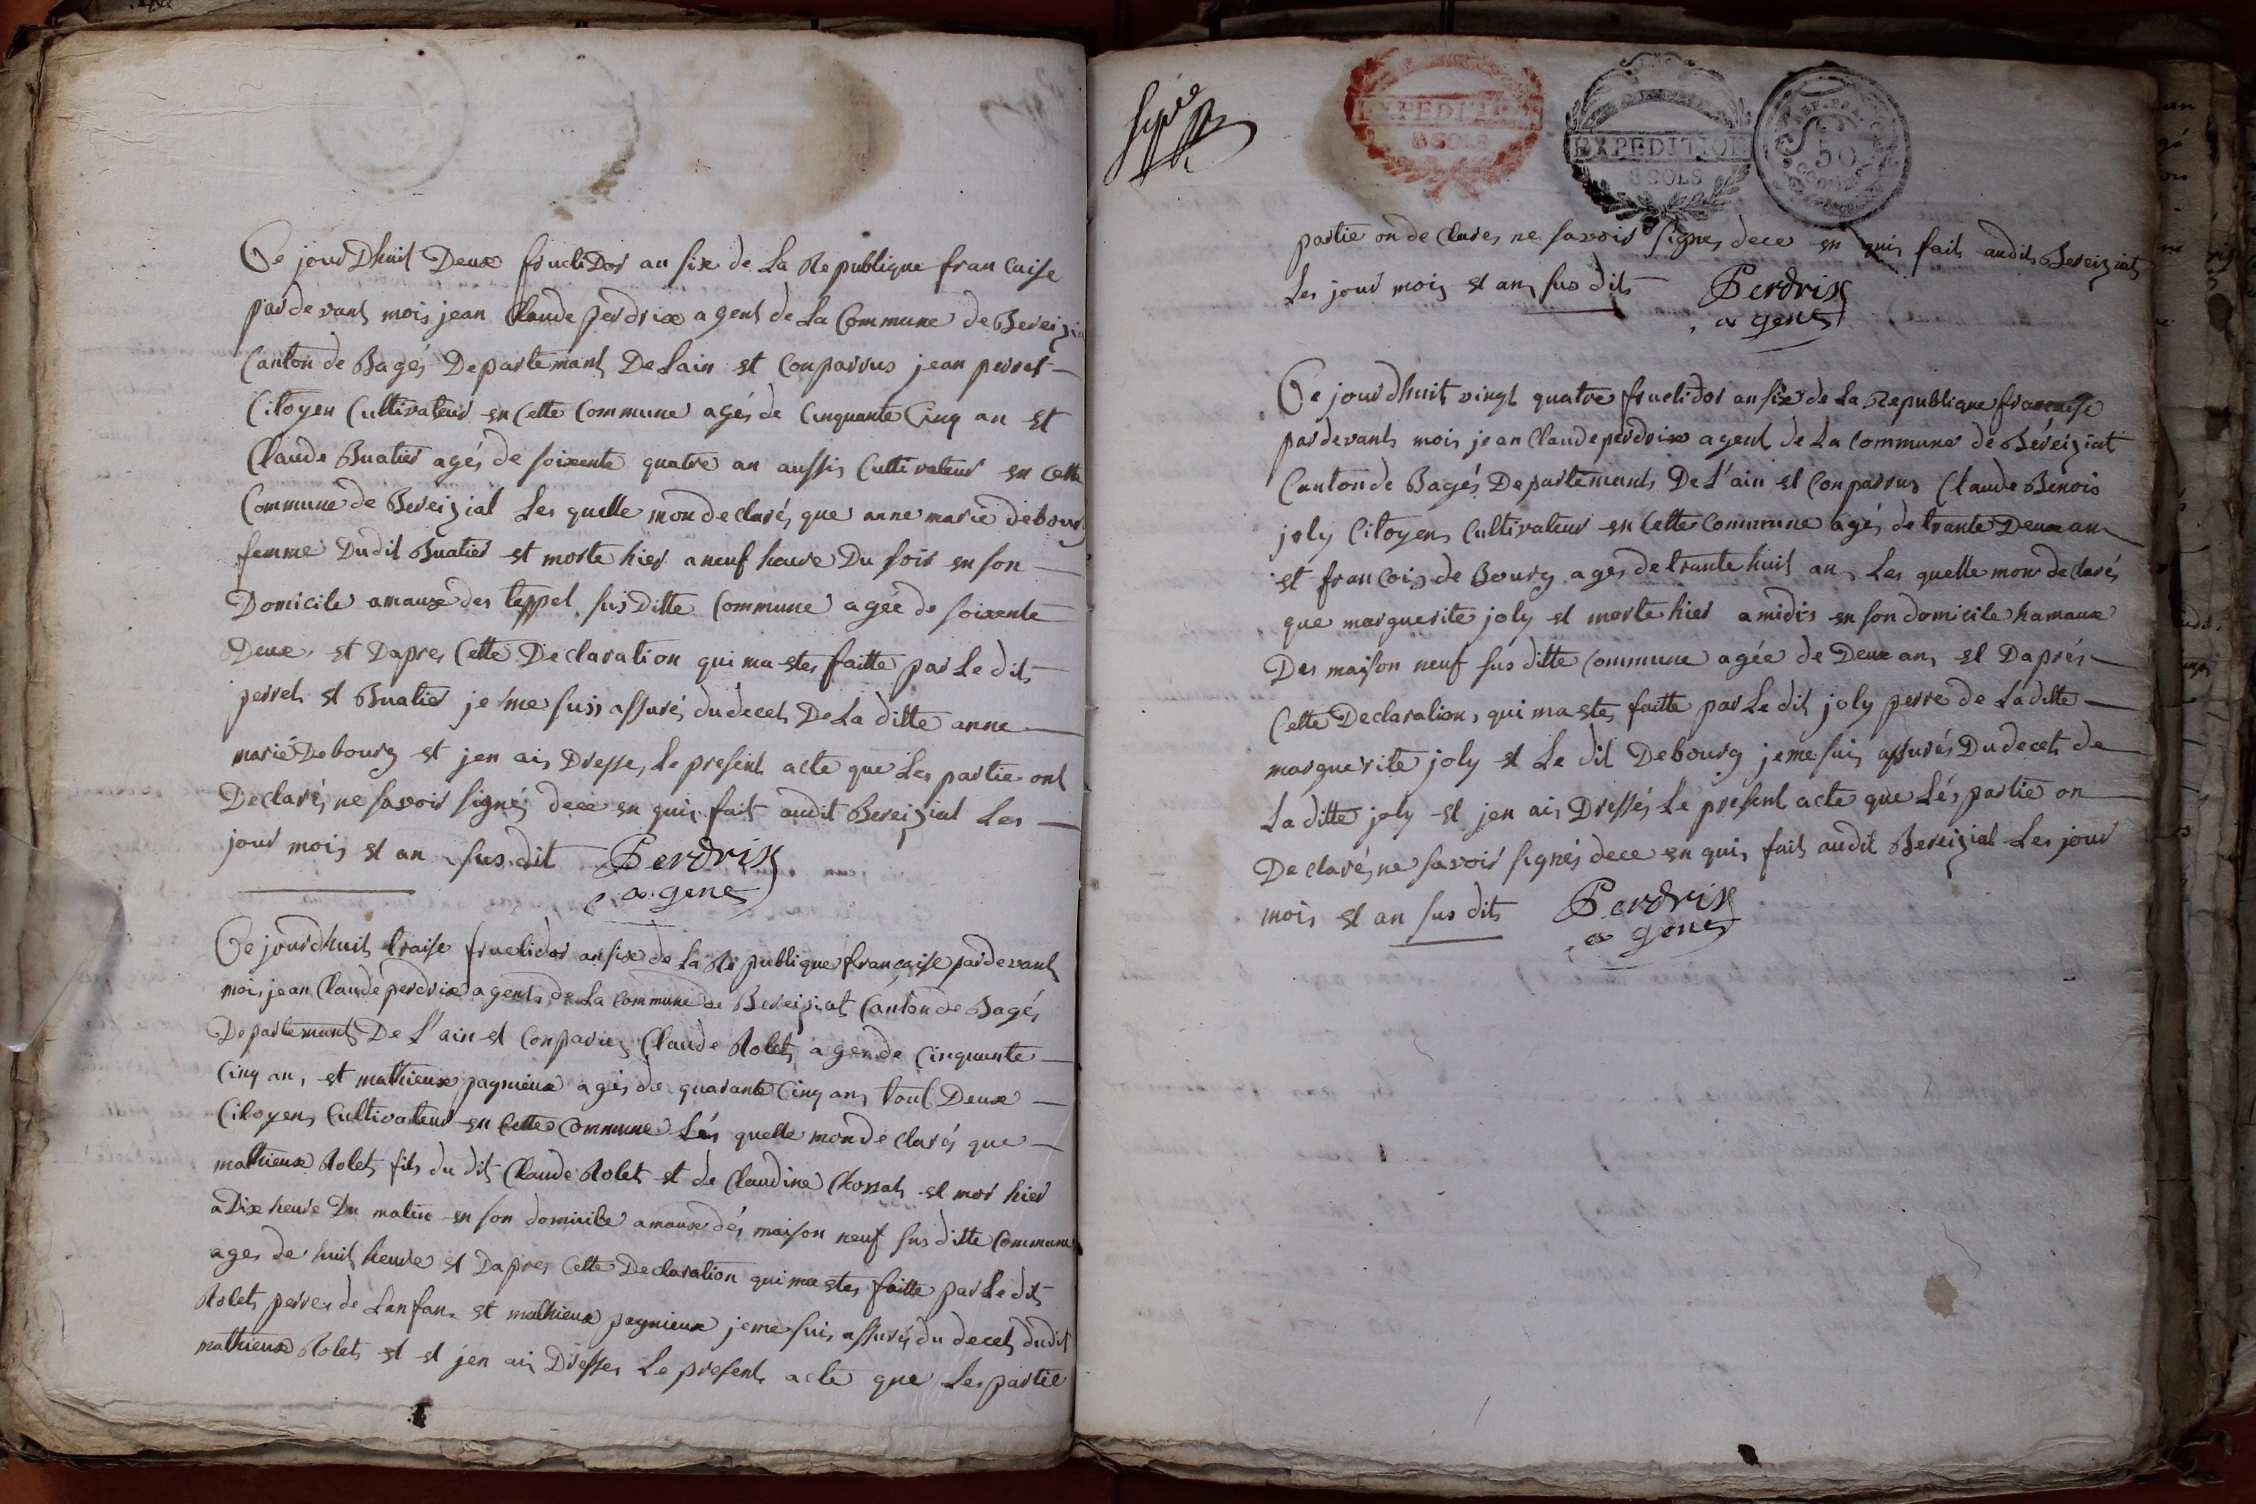 Ce jourDhuit Deux fructiDor an six de La Republique francaise
pardevant mois jean Claude perdrix agent de La Commune de Bereizia
Canton de Bagés Departemant De Lain et Conparrus jean perret
Citoyen Cultivateur en Cette Commune agés de Cinquante Cinq an et
Claude Buatier agés de soixente quatre an aussis Cultivateur en Cette
Commune de Bereizial Les quelle mon declarés que anne marie debourg
femme Dudit Buatier et morte hier a neuf heure Du soir en son
Domicile amaux des teppel susDitte Commune agée de soixente
Deux et Dapres Cette Declaration qui ma etes faitte par Le dit
perret et Buatier je me suis assurés du decet De La ditte anne
marie Debourg et jen ais Dresse Le present acte que Les partie ont
Declarés ne savoir signés dece en quis fait audit Bereizial Les
jour mois et an susdit Perdrix
agent
Ce jourdhuit traise fructidor an six de La Republique francaise pardevant
mois jean Claude perdrix agent de La Commune de Bereiziat Canton de Bagés
Departemant De L'ain et Conparus Claude Rolet agen de Cinquante
Cinq an, et mathieux pagnieux agés de quarante Cinq an tout Deux
Citoyen Cultivateur en Cette Commune Lés quelle monde clarés que
mathieux Rolet fils du dit Claude Rolet et de Claudine Chossat et mor hier
a Dix heure Du matin en son domicile amaux dés maison neuf sus ditte Commune
ages de huit heure et Dapres Cette Declaration qui ma etes faitte par Le dit
Rolet perre de Lanfan et mathieux pagnieux jeme suis assurés du decet dudit
mathieux Rolet et et jen ais Dresses Le present acte que Les partie
EXPEDITION
8 SOLS
EXPEDITION
8 SOLS
REP. FRA.
50
partie on de clares ne savoir signes dece en quis fait audit Bereiziat
Les jour mois et an sus dit Perdrix
agent
Ce jourdhuit vingt quatre fructidor an six de La Republique francaise
pardevant mois jean Claude perdrix agent de La commune de Béréiziat
Canton de Bagés Departemant De L'ain et Conparrus Claude Benois
joly Citoyen Cultivateur en Cette Commune agés de trante Deux an
et francois de Bourg ages de trante huit an Les quelle mon declarés
que marguerite joly et morte hier a midis en son domicile hamaux
Des maison neuf sus ditte Commune agée de Deux an et Daprés
Cette Declaration qui ma etes faitte par Le dit joly perre de Laditte
marguerite joly et Le dit Debourg jeme suis assurés Du decet de
La ditte joly et jen ais Dressés Le present acte que Lés partie on
Declarés ne savoir signés dece en quis fait audit Bereizial Les jour
mois et an sus dit Perdrix
agent